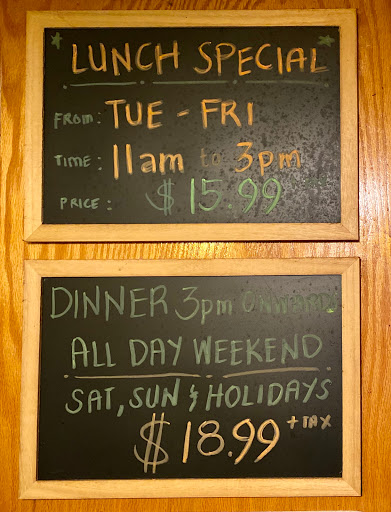 LUNCH SPECIAL
FROM: TUE - FRI
TIME: 11am to 3pm
PRICE: $15.99
DINNER 3pm ONWARDS
ALL DAY WEEKEND
SAT, SUN & HOLIDAYS
$18.99 + TAX